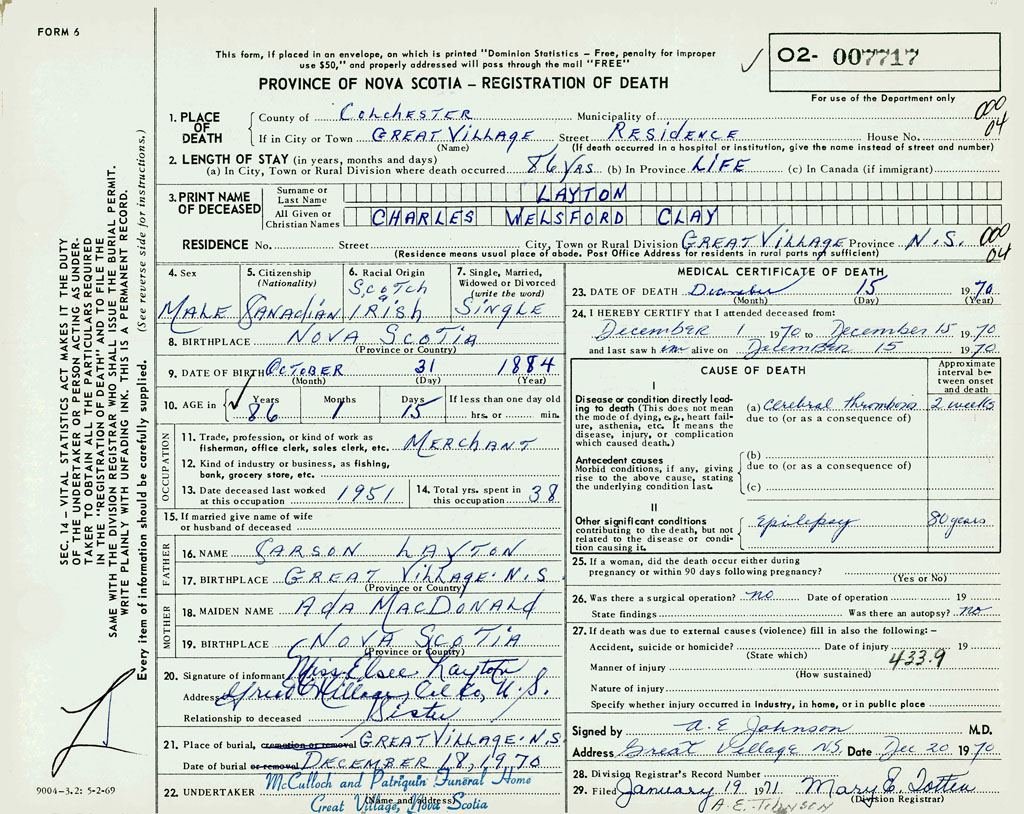 FORM 6
This form, if placed in an envelope, on which is printed "Dominion Statistics – Free, penalty for improper
use $50," and properly addressed will pass through the mail "FREE"
PROVINCE OF NOVA SCOTIA – REGISTRATION OF DEATH
✓ O2- 007717
For use of the Department only
1. PLACE OF DEATH
County of COLCHESTER Municipality of 000
If in City or Town GREAT VILLAGE Street RESIDENCE House No. 04
(Name) (If death occurred in a hospital or institution, give the name instead of street and number)
2. LENGTH OF STAY (in years, months and days)
(a) In City, Town or Rural Division where death occurred 86 YRS (b) In Province LIFE (c) In Canada (if immigrant)
3. PRINT NAME OF DECEASED
Surname or Last Name LAYTON
All Given or Christian Names CHARLES WELSFORD CLAY
RESIDENCE No. Street City, Town or Rural Division GREAT VILLAGE Province N.S. 000 04
(Residence means usual place of abode. Post Office Address for residents in rural parts not sufficient)
4. Sex MALE
5. Citizenship (Nationality) CANADIAN
6. Racial Origin SCOTCH IRISH
7. Single, Married, Widowed or Divorced (write the word) SINGLE
8. BIRTHPLACE NOVA SCOTIA
(Province or Country)
9. DATE OF BIRTH OCTOBER 31 1884
(Month) (Day) (Year)
10. AGE in ✓ Years 86 Months 1 Days 15 If less than one day old
hrs. or min.
OCCUPATION
11. Trade, profession, or kind of work as
fisherman, office clerk, sales clerk, etc. MERCHANT
12. Kind of industry or business, as fishing,
bank, grocery store, etc.
13. Date deceased last worked
at this occupation 1951
14. Total yrs. spent in
this occupation 38
15. If married give name of wife
or husband of deceased
FATHER
16. NAME CARSON LAYTON
17. BIRTHPLACE GREAT VILLAGE. N.S.
(Province or Country)
MOTHER
18. MAIDEN NAME ADA MACDONALD
19. BIRTHPLACE NOVA SCOTIA
(Province or Country)
20. Signature of informant Miss Elsee Layton
Address Great Village, Col. Co, N.S.
Relationship to deceased Sister
21. Place of burial, cremation or removal GREAT VILLAGE. N.S.
Date of burial or removal DECEMBER 18, 1970
22. UNDERTAKER McCulloch and Patriquin Funeral Home
(Name and address)
Great Village, Nova Scotia
MEDICAL CERTIFICATE OF DEATH
23. DATE OF DEATH December 15 1970
(Month) (Day) (Year)
24. I HEREBY CERTIFY that I attended deceased from:
December 1 1970 to December 15 1970
and last saw h im alive on December 15 1970
CAUSE OF DEATH
Approximate interval between onset and death
I
Disease or condition directly leading to death (This does not mean the mode of dying, e.g., heart failure, asthenia, etc. It means the disease, injury, or complication which caused death.)
(a) Cerebral thrombosis 2 weeks
due to (or as a consequence of)
Antecedent causes
Morbid conditions, if any, giving rise to the above cause, stating the underlying condition last.
(b)
due to (or as a consequence of)
(c)
II
Other significant conditions
contributing to the death, but not related to the disease or condition causing it.
Epilepsy 80 years
25. If a woman, did the death occur either during
pregnancy or within 90 days following pregnancy?
(Yes or No)
26. Was there a surgical operation? no Date of operation 19
State findings Was there an autopsy? no
27. If death was due to external causes (violence) fill in also the following:–
Accident, suicide or homicide? Date of injury 19
(State which) 433.9
Manner of injury
(How sustained)
Nature of injury
Specify whether injury occurred in industry, in home, or in public place
Signed by A. E. Johnson M.D.
Address Great Village N.S. Date Dec 20 1970
28. Division Registrar's Record Number
29. Filed January 19 1971 Mary E. Totten
(Division Registrar)
A. E. JOHNSON
SEC. 14 – VITAL STATISTICS ACT MAKES IT THE DUTY
OF THE UNDERTAKER OR PERSON ACTING AS UNDER-
TAKER TO OBTAIN ALL THE PARTICULARS REQUIRED
IN THE "REGISTRATION OF DEATH" AND TO FILE THE
SAME WITH THE DIVISION REGISTRAR WHO SHALL ISSUE THE BURIAL PERMIT.
WRITE PLAINLY WITH UNFADING INK. THIS IS A PERMANENT RECORD.
Every item of information should be carefully supplied. (See reverse side for instructions.)
9004-3.2: 5-2-69